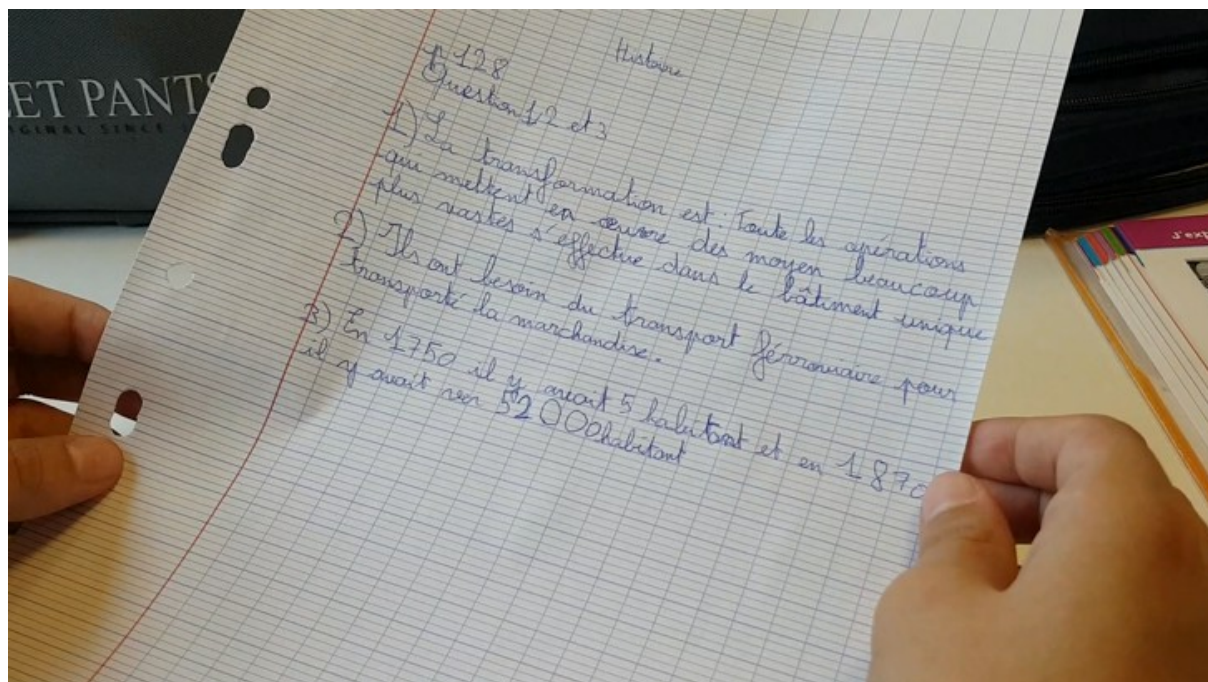 ET PANTS
ORIGINAL SINCE
Histoire
p 128
Question 1, 2 et 3
1) La transformation est : Toute les opérations
qui mettent en œuvre des moyen beaucoup
plus vastes s'effectue dans le bâtiment unique
2) Ils ont besoin du transport férroviaire pour
transporté la marchandise.
3) En 1750 il y avait 5 habitant et en 1870
il y avait 52000habitant
J'exp